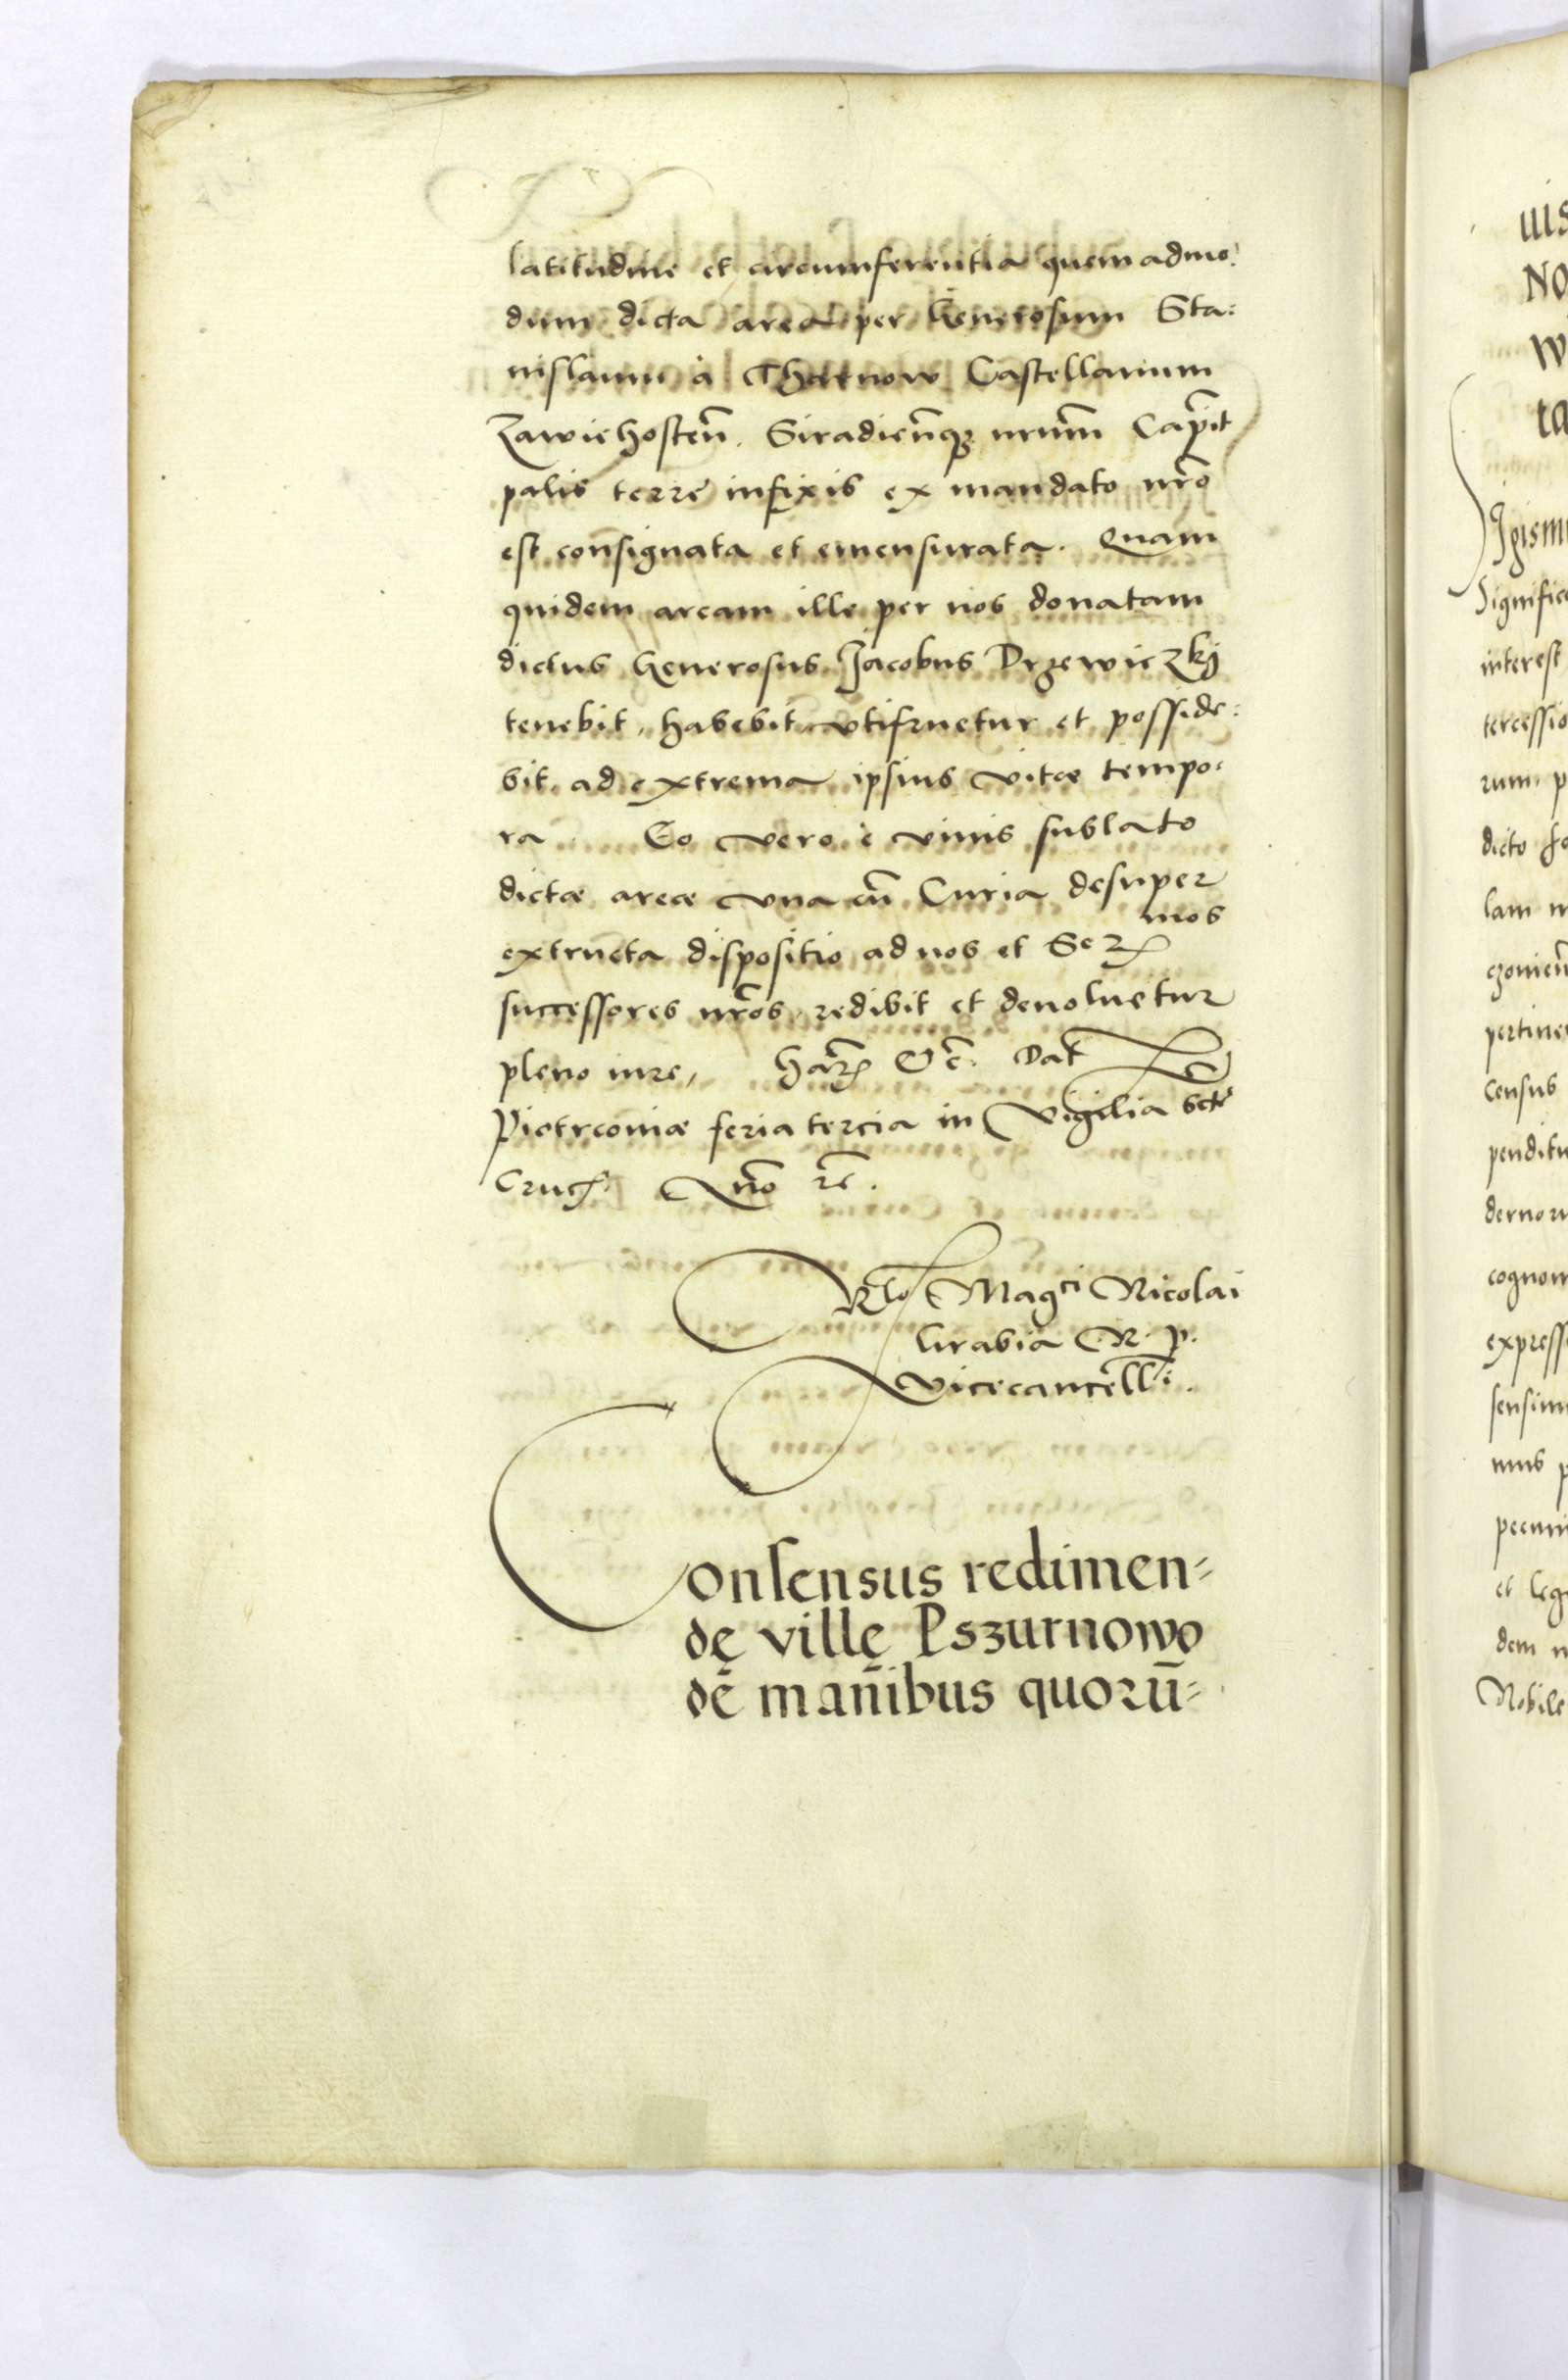 latitudine et circumferentia quemadmo:
dum dicta area per Generosum Sta:
nislaum à Tharnow Castellanum
Zawichosteñ. Siradieñqꝫ nrum̃ Capit̃
palis terre infixis ex mandato nr̃o
est consignata et emensurata. Quam
quidem aream ille per nos donatam
dictus Generosus Jacobus Drzewiczkij
tenebit, habebit vtifruetur et posside:
bit ad extrema ipsius vitæ tempo:
ra Eo vero è viuis sublato
dictæ areæ vna cũ Curia desuper
extructa dispositio ad nos et Serꝫ mos
successores nr̃os redibit et deuoluetur
pleno iure, harꝫ &c̃. Dat̃
Piotrcouiæ feria tercia in Vigilia sctẽ
Cruc̃ Año r̃e.
Rlo Magci Nicolai
Grabia R. P.
Vicecancell̃i.
Consensus redimen-
dę villę Pszurnowo
dẽ mañibus quorũ-
iiis
No
w
ta
Igism
Signific
interest
tercessio
rum p
dicto
lam
pertine
Census
penditu
cognom
express
sensim
mus p
pecuni
et leg
dem n
Nobile